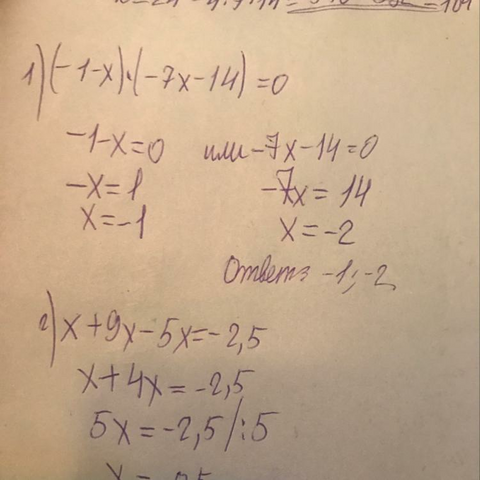 1) (-1-x)·(-7x-14)=0
-1-x=0 или -7x-14=0
-x=1 -7x=14
x=-1 x=-2
Ответ: -1; -2
2) x+9x-5x=-2,5
x+4x=-2,5
5x=-2,5 /:5